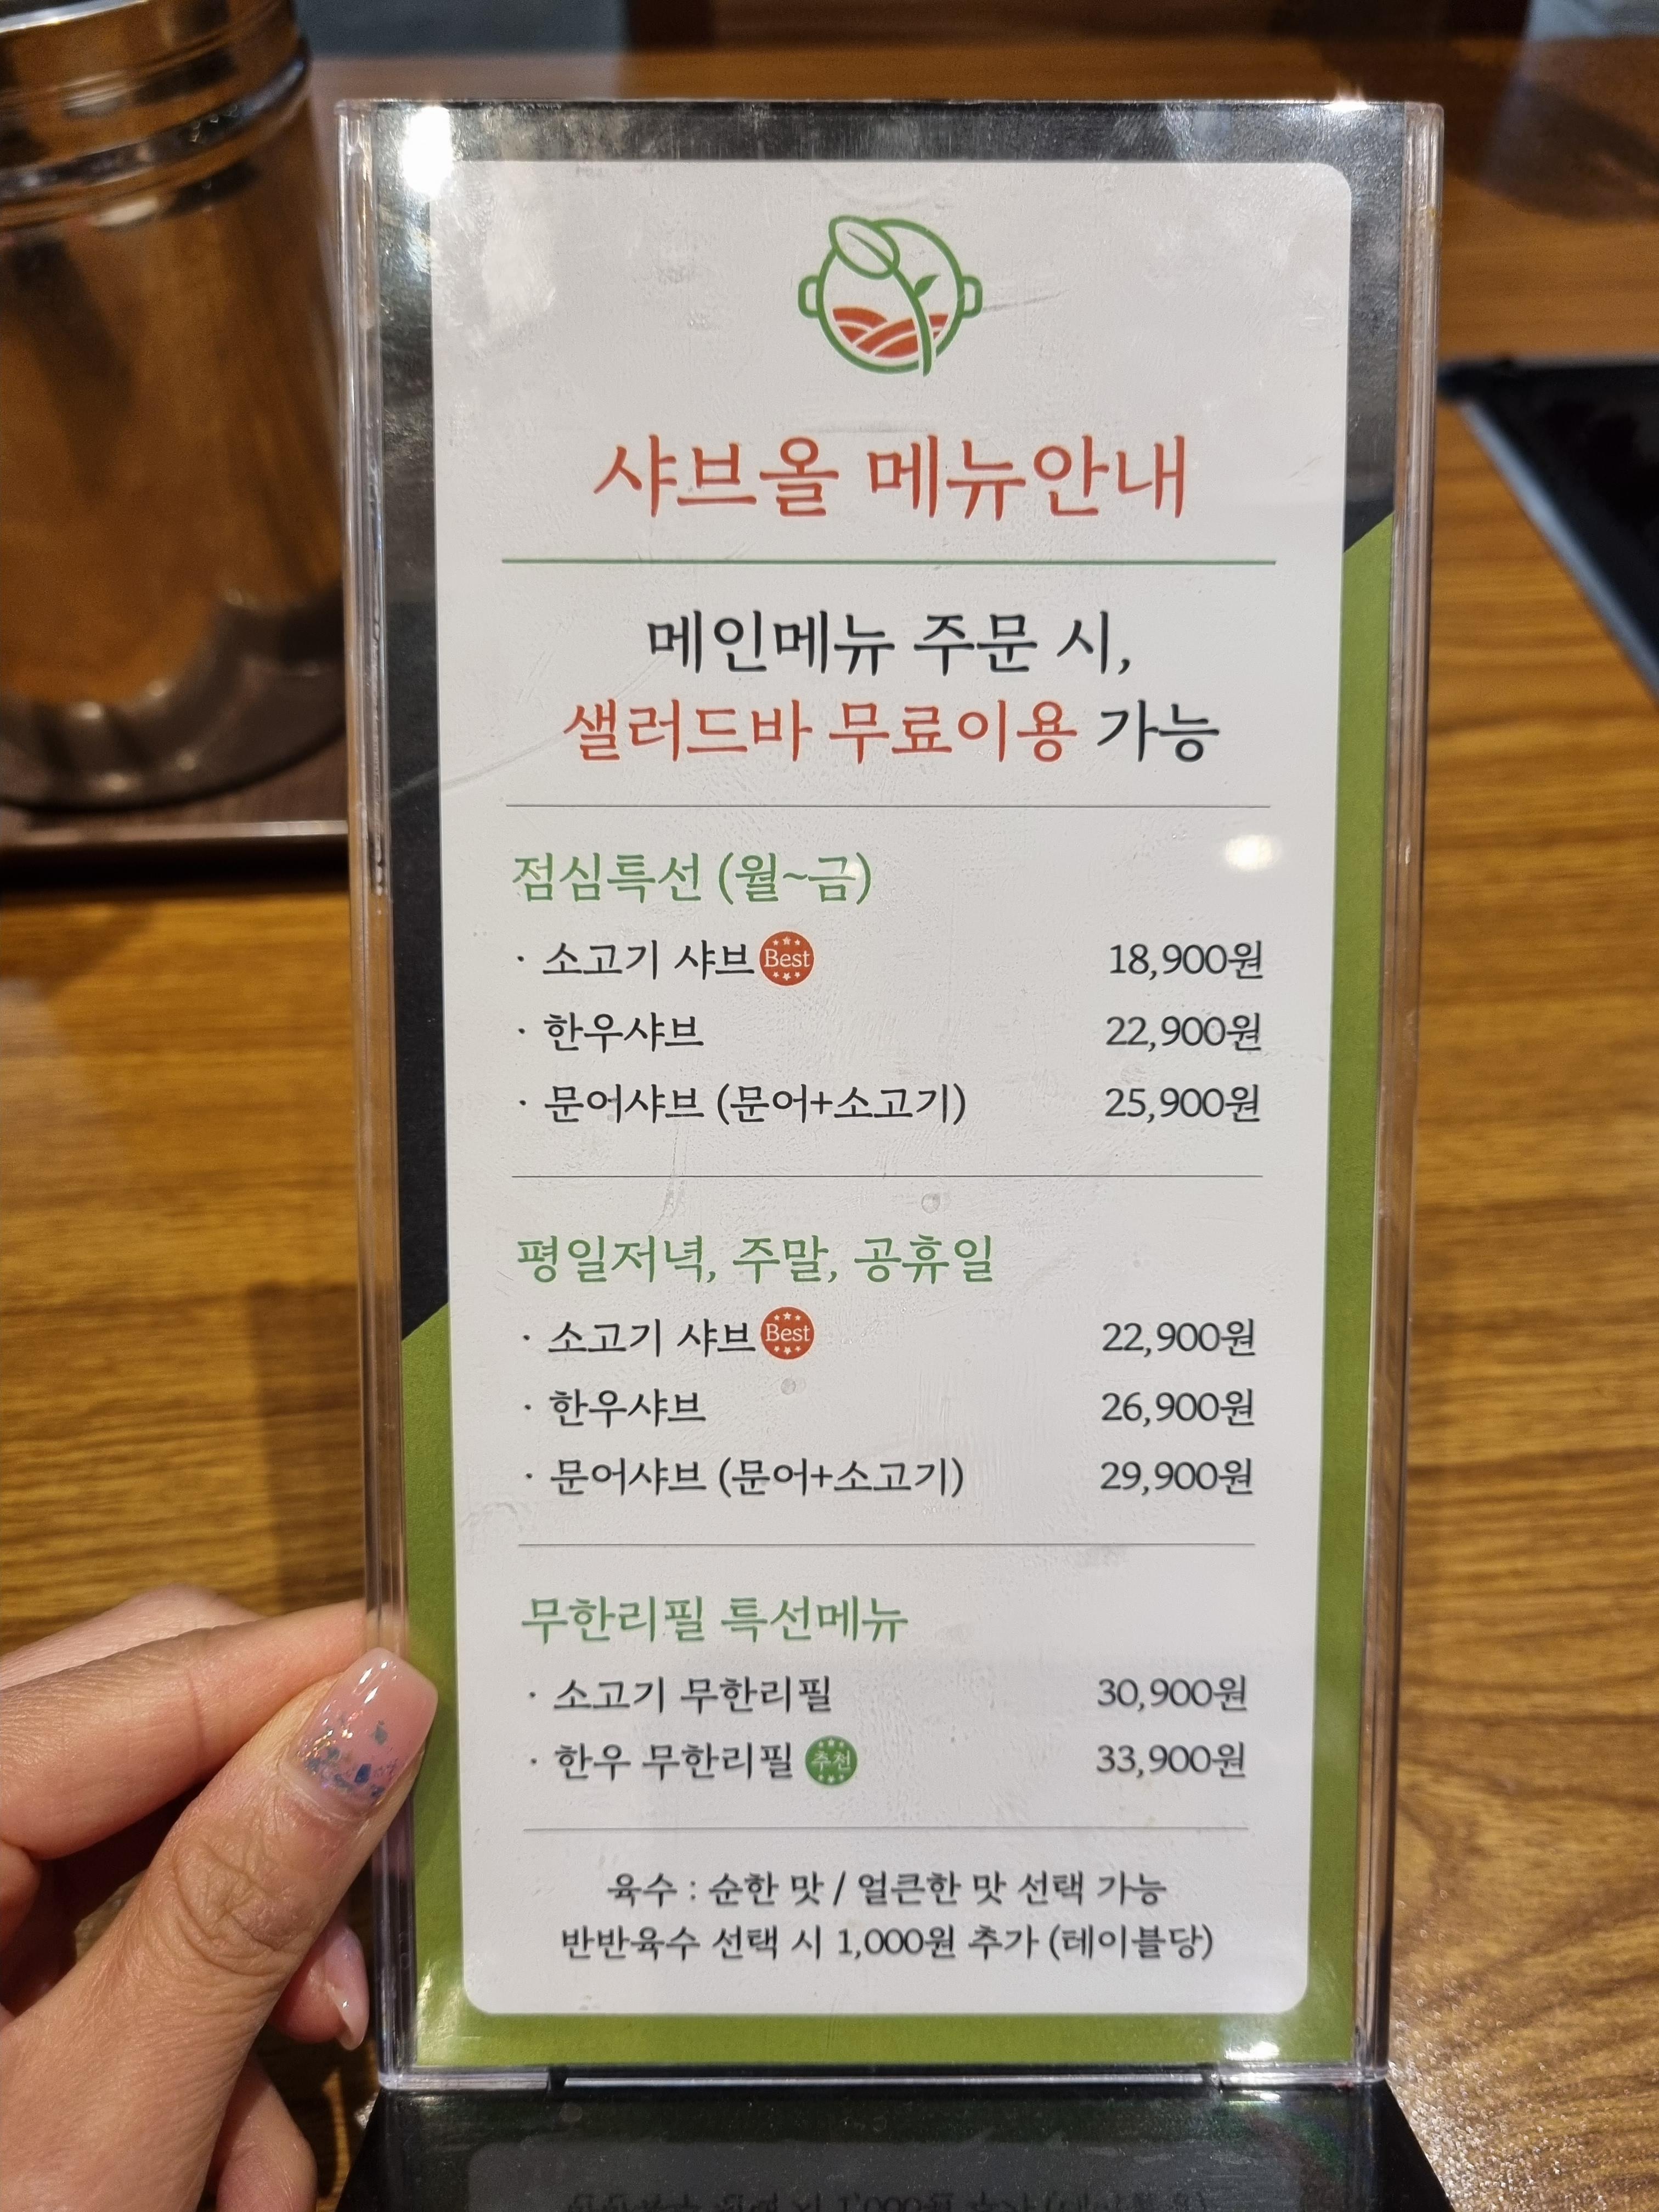 샤브올 메뉴안내
메인메뉴 주문 시,
샐러드바 무료이용 가능
점심특선 (월~금)
· 소고기 샤브 Best 18,900원
· 한우샤브 22,900원
· 문어샤브 (문어+소고기) 25,900원
평일저녁, 주말, 공휴일
· 소고기 샤브 Best 22,900원
· 한우샤브 26,900원
· 문어샤브 (문어+소고기) 29,900원
무한리필 특선메뉴
· 소고기 무한리필 30,900원
· 한우 무한리필 추천 33,900원
육수 : 순한 맛 / 얼큰한 맛 선택 가능
반반육수 선택 시 1,000원 추가 (테이블당)